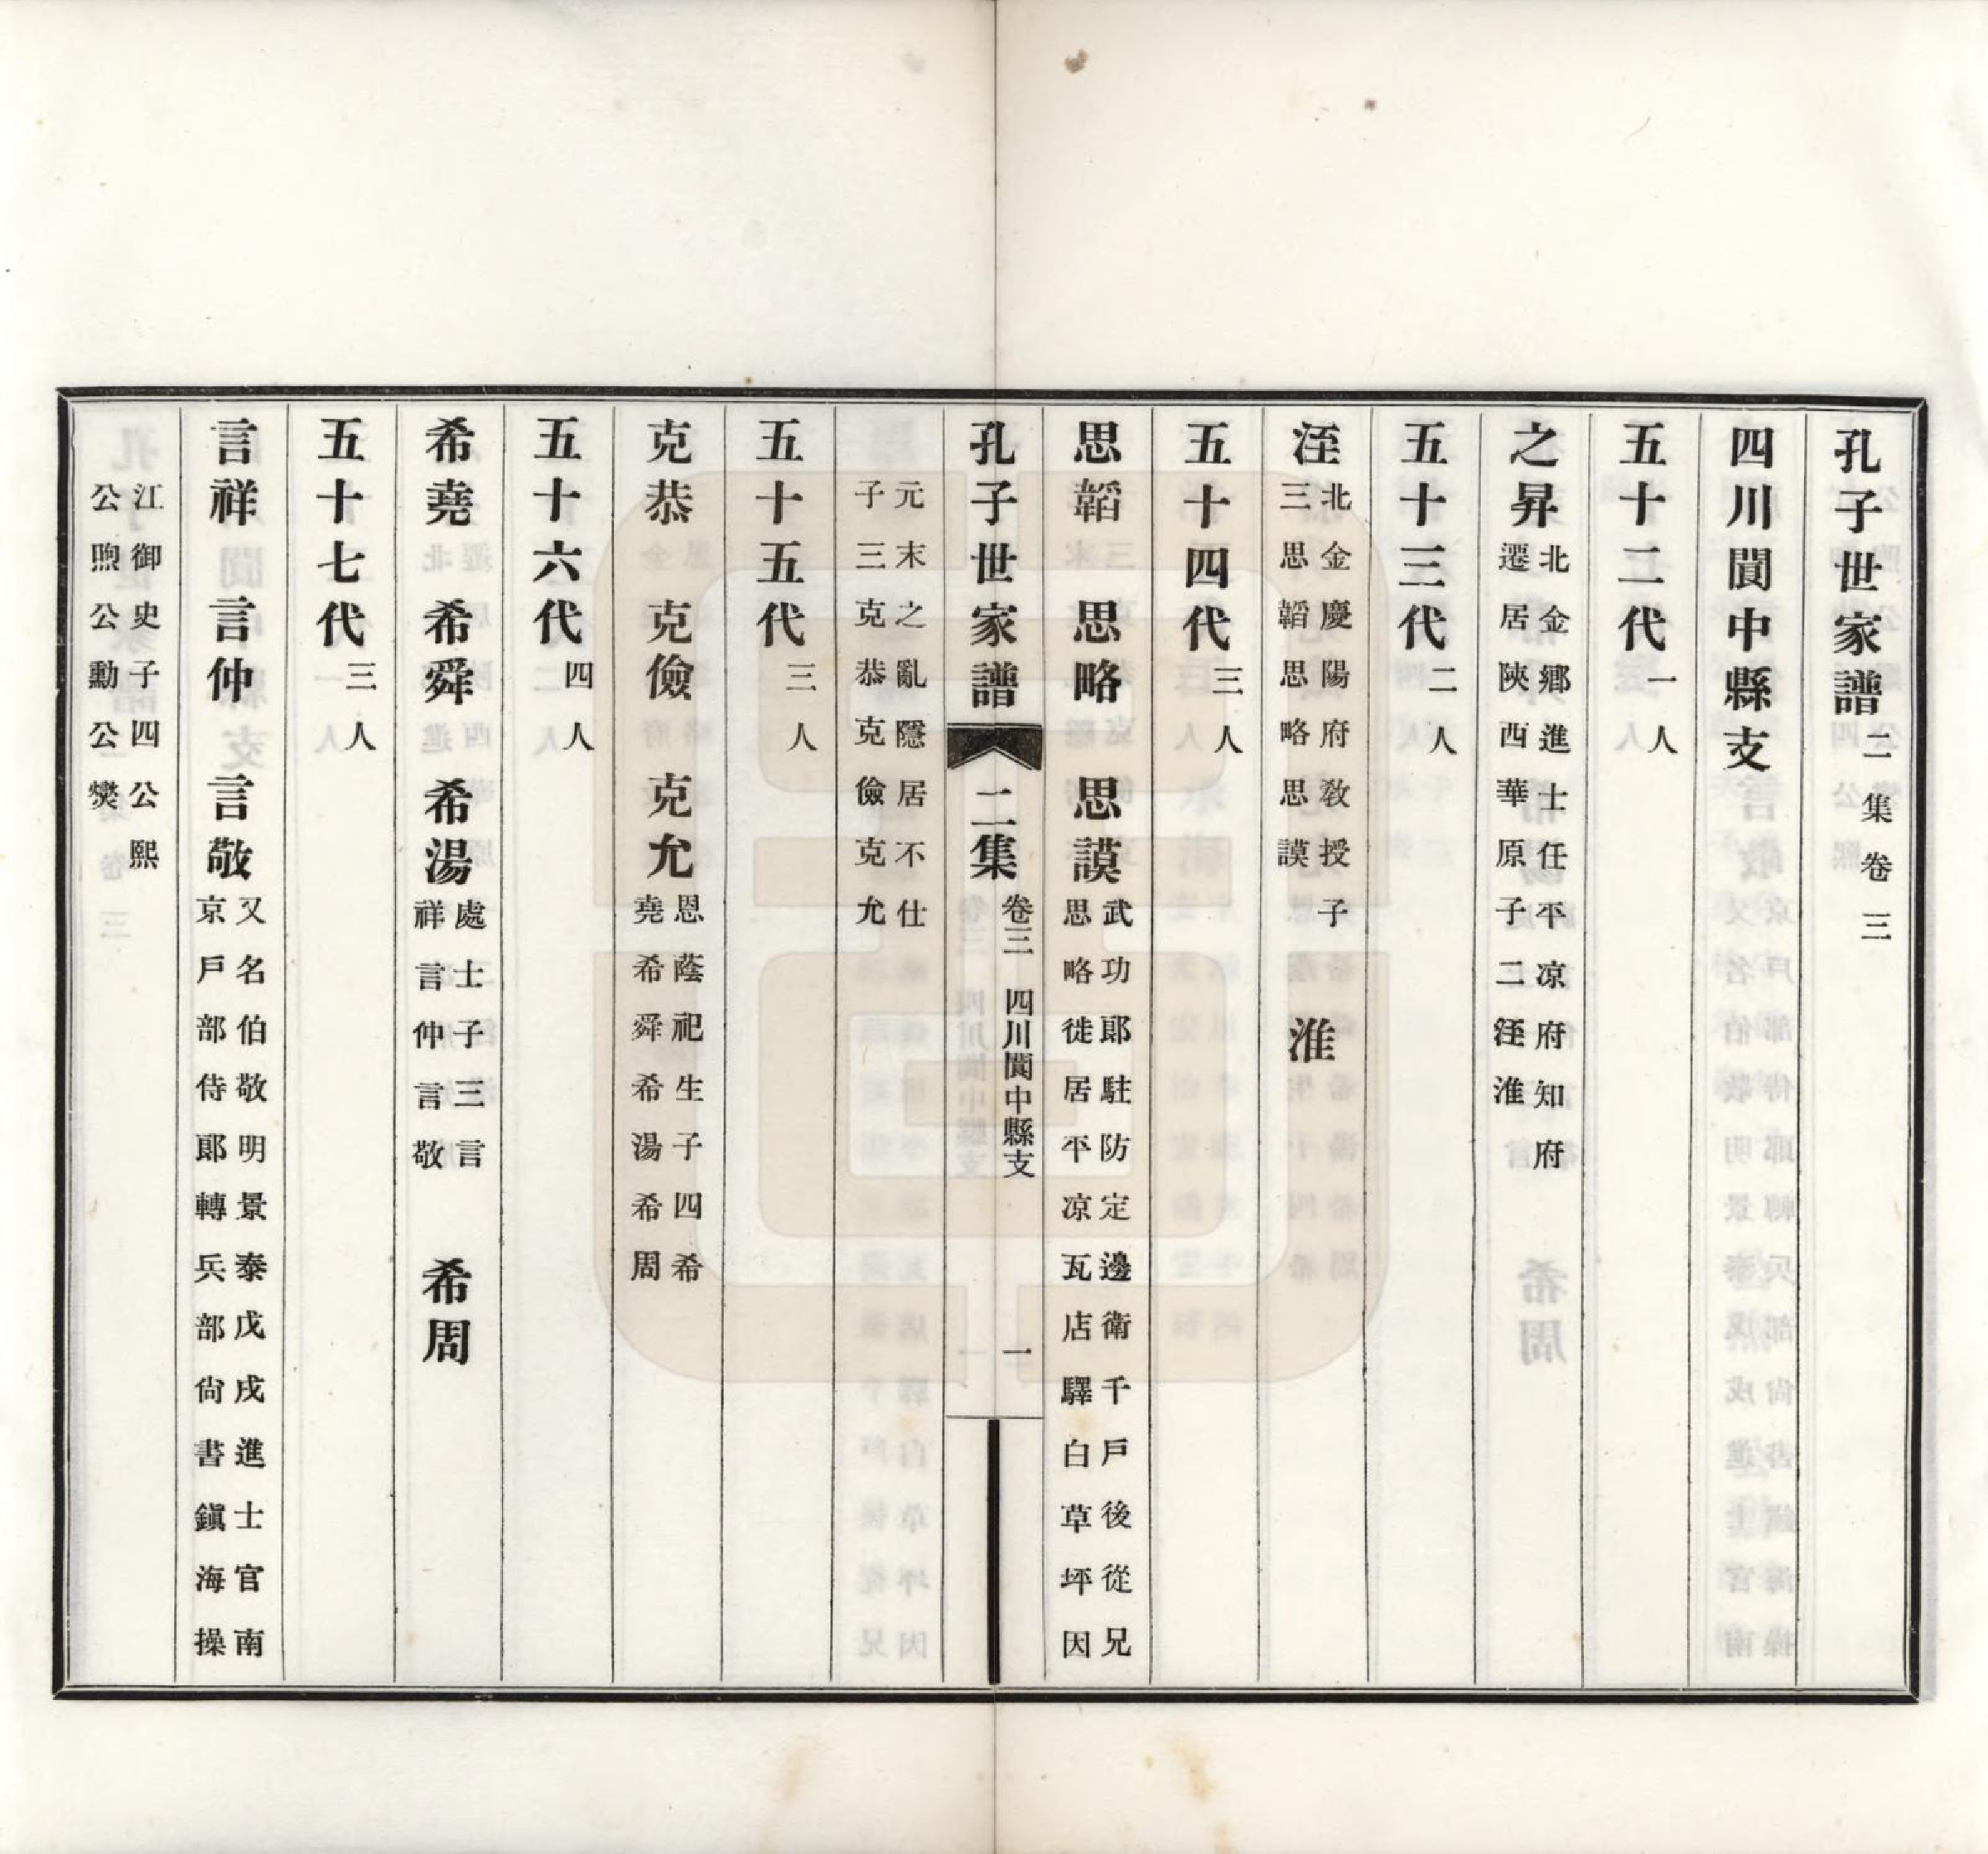 孔子世家譜 二集卷三
四川閬中縣支
五十二代 一人
之昇 北金鄉進士任平凉府知府
遷居陝西華原子二洷淮
五十三代 二人
洷 北金慶陽府教授子
三思韜思略思謨
淮
五十四代 三人
思韜 思略 思謨 武功郎駐防定邊衛千戶後從兄
思略徙居平凉瓦店驛白草坪因
孔子世家譜 二集 卷三 四川閬中縣支 一
元末之亂隱居不仕
子三克恭克儉克允
五十五代 三人
克恭 克儉 克允 恩蔭祀生子四希
堯希舜希湯希周
五十六代 四人
希堯 希舜 希湯 處士子三言
祥言仲言敬
希周
五十七代 三人
言祥 言仲 言敬 又名伯敬明景泰戊戌進士官南
京戶部侍郎轉兵部尙書鎭海操
江御史子四公熙
公煦公勳公爕